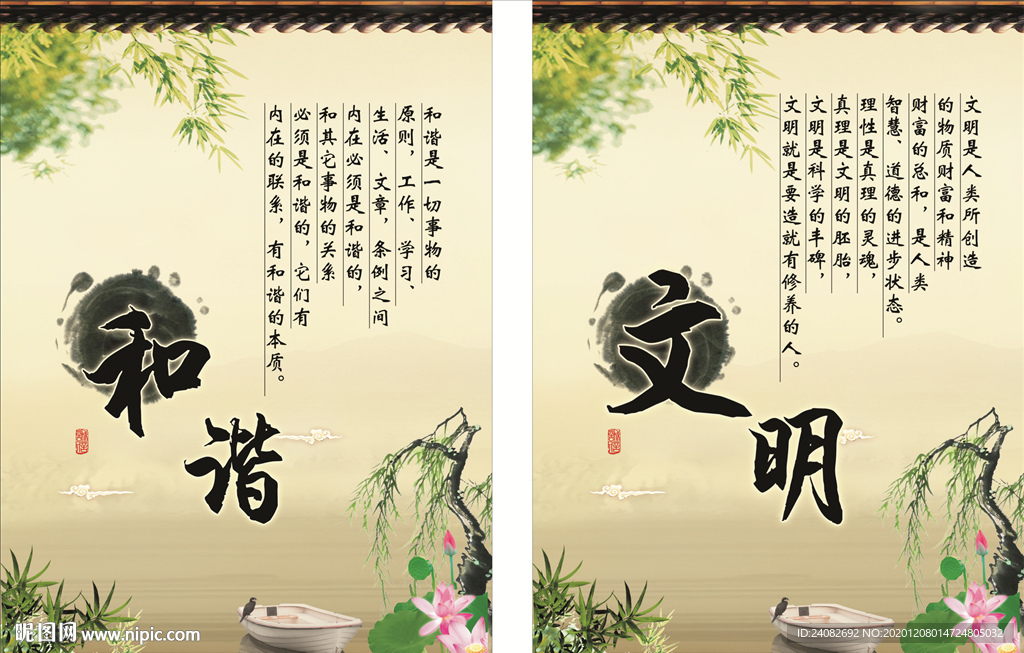 和谐是一切事物的
原则，工作、学习、
生活、文章，条例之间
内在必须是和谐的，
和其它事物的关系
必须是和谐的，它们有
内在的联系，有和谐的本质。
和
谐
文明是人类所创造
的物质财富和精神
财富的总和，是人类
智慧、道德的进步状态。
理性是真理的灵魂，
真理是文明的胚胎，
文明是科学的丰碑，
文明就是要造就有修养的人。
文
明
昵图网 www.nipic.com
ID:24082692 NO:20201208014724805032